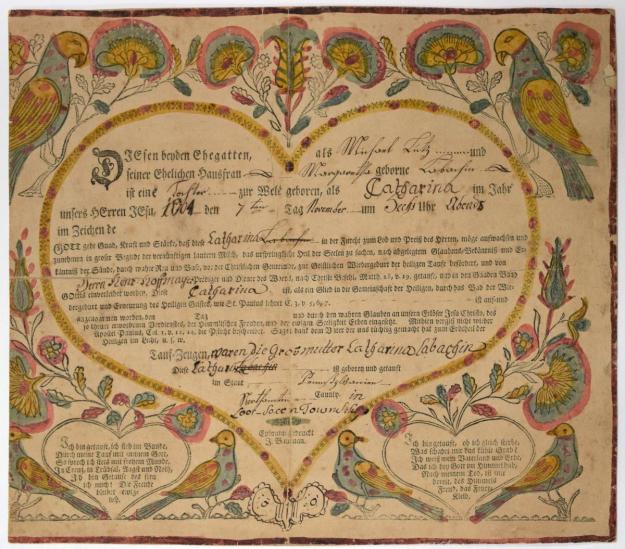 DIesen beyden Ehegatten, als Michael Lutz und
seiner Ehelichen Hausfrau Margaretha geborne Labachin
ist eine Tochter zur Welt geboren, als Catharina im Jahr
unsers HErren JEsu, 1804 den 7ten Tag November um Sechs Uhr Abends
im Zeichen de
GOtt gebe Gnad, Kraft und Stärke, daß diese Catharina Labachin in der Furcht zum Lob und Preiß des Herren, möge auswachsen und
zunehmen in grosser Begierde der vernünftigen lautern Milch, das ursprüngliche Heil der Seelen zu suchen, nach abgelegtem Glaubens-Bekäntniß und Er-
käntniß der Sünde, durch wahre Reu und Buß, vor der Christlichen Gemeinde, zur Geistlichen Wiedergeburt der heiligen Taufe befördert, und von
Herrn Prediger und Diener des Worts, nach Christi Befehl, Matth. 28, v. 19. getauft, und in den Gnaden Bund
GOttes einverleibet worden. Diese Catharina ist, als ein Glied in die Gemeinschaft der Heiligen, durch das Bad der Wie-
dergeburt und Erneurung des Heiligen Geistes, wie St. Paulus lehret
ist auf- und
angenommen worden, den Tag und durch den wahren Glauben an unsern Erlöser Jesu Christo, des
so theuer erworbenen Verdienstes, der Himmlischen Freuden, und der ewigen Seeligkeit Erben eingesetzt.
Apostel Paulus, Col. 1. v. 12. die Pflicht beschreibet. Saget dank dem Vater der uns tüchtig gemacht hat zum Erbtheil der
Heiligen im Licht, u. s. w.
Tauf-Zeugen, waren die Grosmutter Catharina Labachin
Diese Cathar Labachin ist geboren und getauft
im Staat Pennsylvanien
Northamton County in
Township
Ephrata gedruckt
J. Bauman.
Ich bin getauft, ich steh im Bunde,
Durch meine Tauf mit meinem Gott,
So sprech ich stets mit frohem Munde,
In Creutz, in Trübsal, Angst und Noth,
Ich bin Getauft des freu
ich mich! Die Freude
bleibet ewig-
lich.
Ich bin getauft, ob ich gleich sterbe,
Was schadet mir das kühle Grab!
Ich weiß mein Vaterland und Erbe,
Das ich bey Gott im Himmel hab,
Nach meinem Tod, ist mir
bereit, des Himmels
Freud, das Feyer-
Kleid.